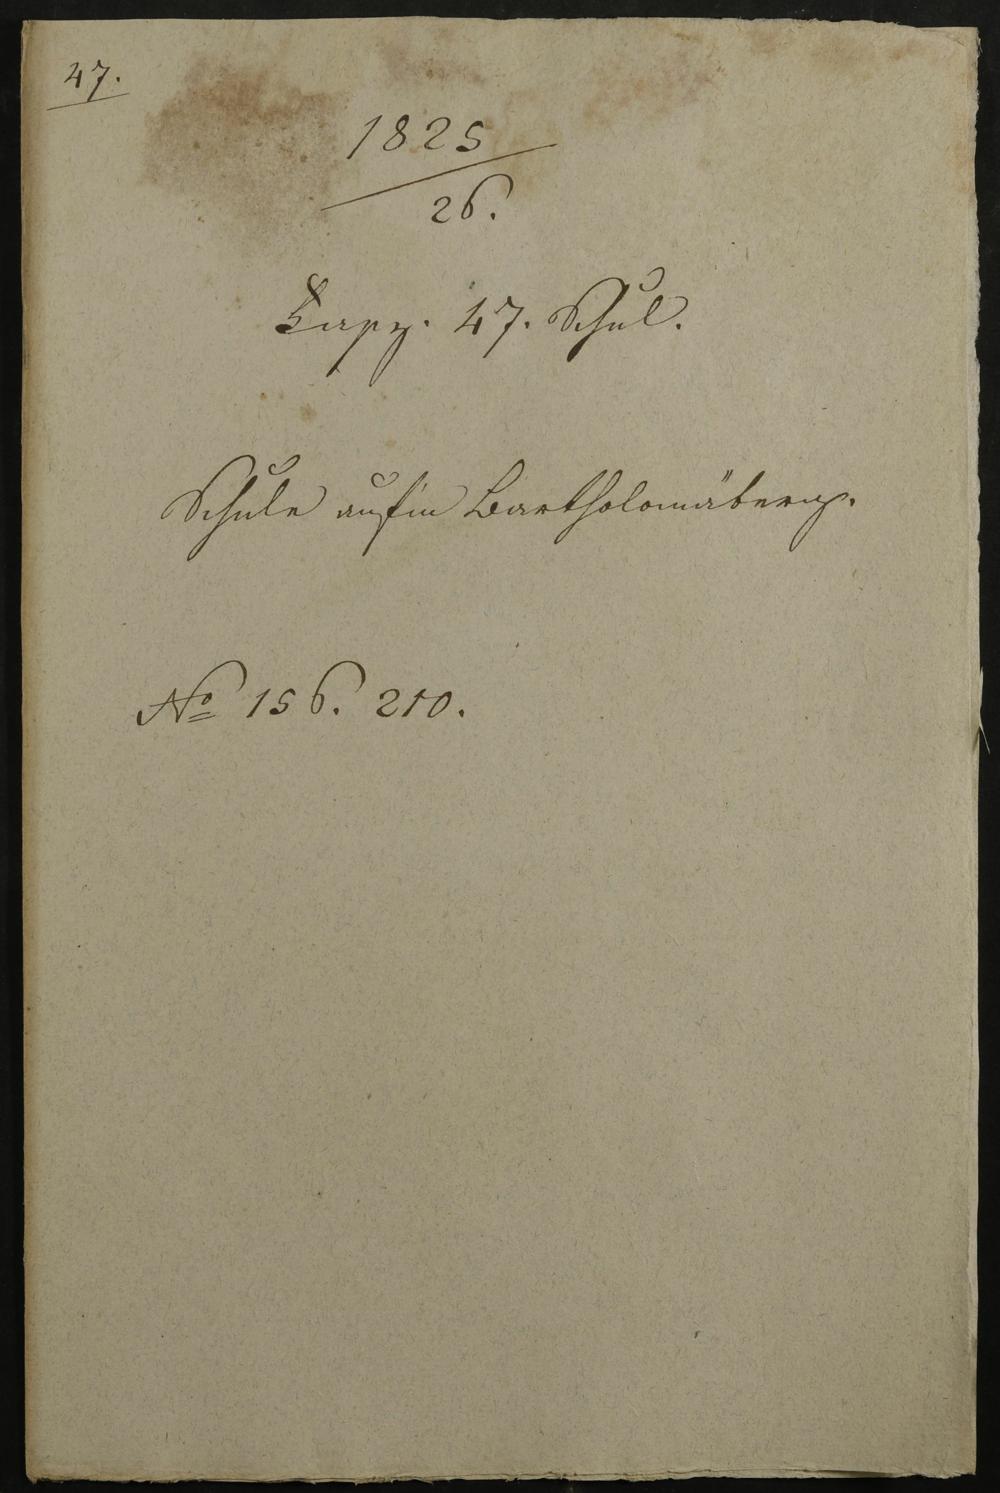 47.
1825
26.
47. Schul.
Schule auf'm Bartholomäberg.
No 156. 210.